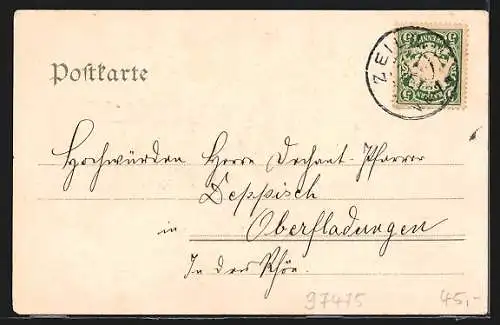 Postkarte
ZEIL
Hochwürden Herrn Dechant-Pfarrer
Deppisch
in Oberfladungen
In der Rhön.
97475 45,-